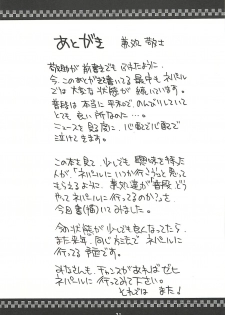 あとがき
敬助が前書きでもふれたように
今、このあとがきを書いてる最中もネパール
では大変な状態が続いています。
普段は本当に平和で、のんびりしていて
とても良い所なんだ…。
ニュースを見る度に、心配で心配で
泣けてきます。
この本を見て、少しでも興味を持った
人が「ネパールにいつか行こう」って思って
もらえるように、「普段どうやって
に行ってるのか?」って
今回書(描)いてみました。
今の状態が少しでも良くなってたら
また来年、同じカンジでネパールに
行ってる予定です。
みなさんも、チャンスがあればゼヒ
ネパールに行ってみて下さい。
それでは また♪